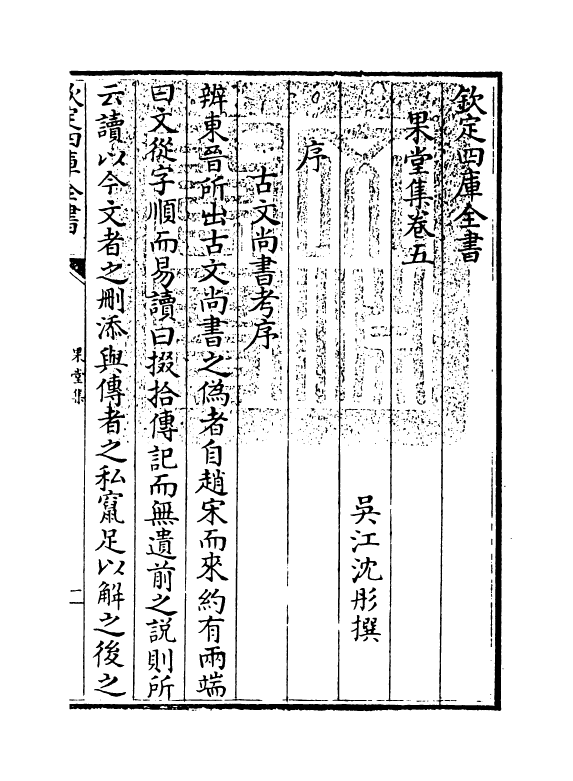 欽定四庫全書
果堂集卷五
吳江沈彤撰
序
古文尚書考序
辨東晉所出古文尚書之偽者自趙宋而來約有兩端
曰文從字順而易讀曰掇拾傳記而無遺前之説則所
云讀以今文者之刪添與傳者之私竄足以解之後之
欽定四庫全書
果堂集